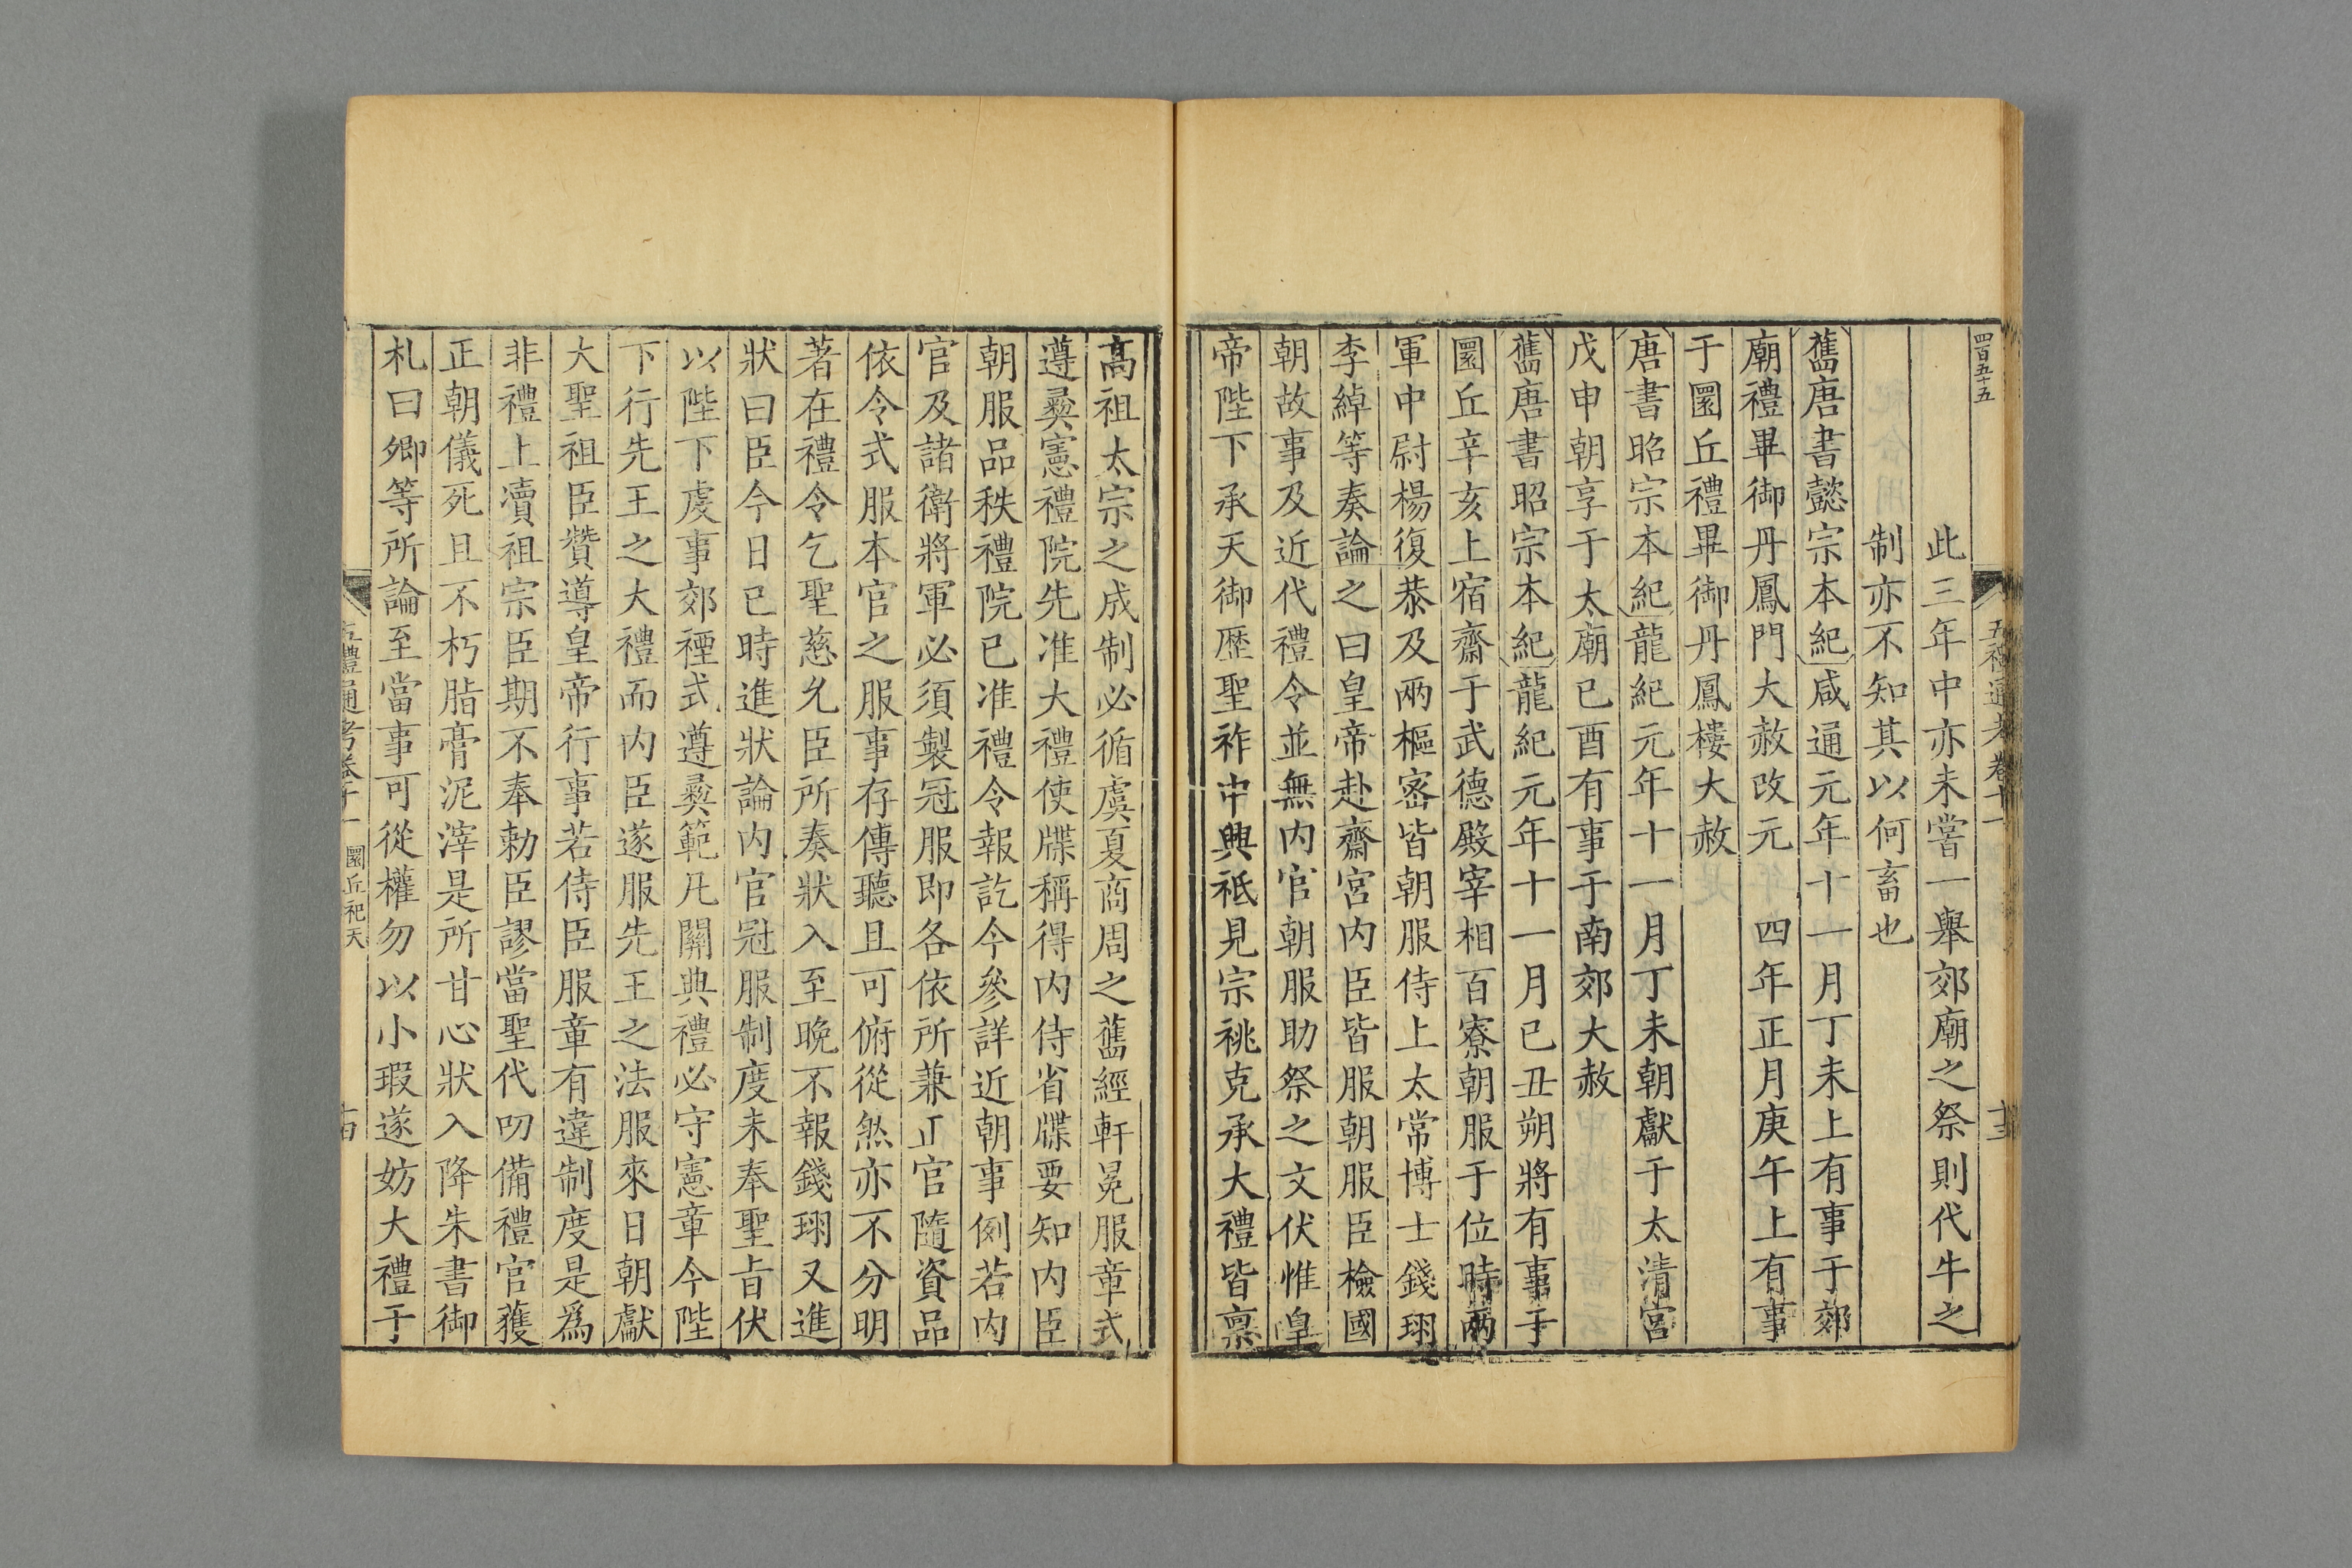 四百五十五
五禮通考卷十一
十三
此三年中亦未嘗一舉郊廟之祭則代牛之
制亦不知其以何畜也
舊唐書懿宗本紀咸通元年十一月丁未上有事于郊
廟禮畢御丹鳳門大赦改元　四年正月庚午上有事
于圜丘禮畢御丹鳳樓大赦
唐書昭宗本紀龍紀元年十一月丁未朝獻于太清宮
戊申朝享于太廟已酉有事于南郊大赦
舊唐書昭宗本紀龍紀元年十一月已丑朔將有事于
圜丘辛亥上宿齋于武德殿宰相百寮朝服于位時兩
軍中尉楊復恭及兩樞密皆朝服侍上太常博士錢珝
李綽等奏論之曰皇帝赴齋宮內臣皆服朝服臣檢國
朝故事及近代禮令並無內官朝服助祭之文伏惟皇
帝陛下承天御歷聖祚中興祗見宗祧克承大禮皆禀
高祖太宗之成制必循虞夏商周之舊經軒冕服章式
遵彜憲禮院先准大禮使牒稱得內侍省牒要知內臣
朝服品秩禮院已准禮令報訖今參詳近朝事例若內
官及諸衛將軍必須製冠服即各依所兼正官隨資品
依令式服本官之服事存傳聽且可俯從然亦不分明
著在禮令乞聖慈允臣所奏狀入至晚不報錢珝又進
狀曰臣今日已時進狀論內官冠服制度未奉聖旨伏
以陛下虔事郊禋式遵彜範凡關典禮必守憲章今陛
下行先王之大禮而內臣遂服先王之法服來日朝獻
大聖祖臣贊導皇帝行事若侍臣服章有違制度是爲
非禮上瀆祖宗臣期不奉勅臣謬當聖代叨備禮官獲
正朝儀死且不朽脂膏泥滓是所甘心狀入降朱書御
札曰卿等所論至當事可從權勿以小瑕遂妨大禮于
五禮通考卷十一　圜丘祀天
十四